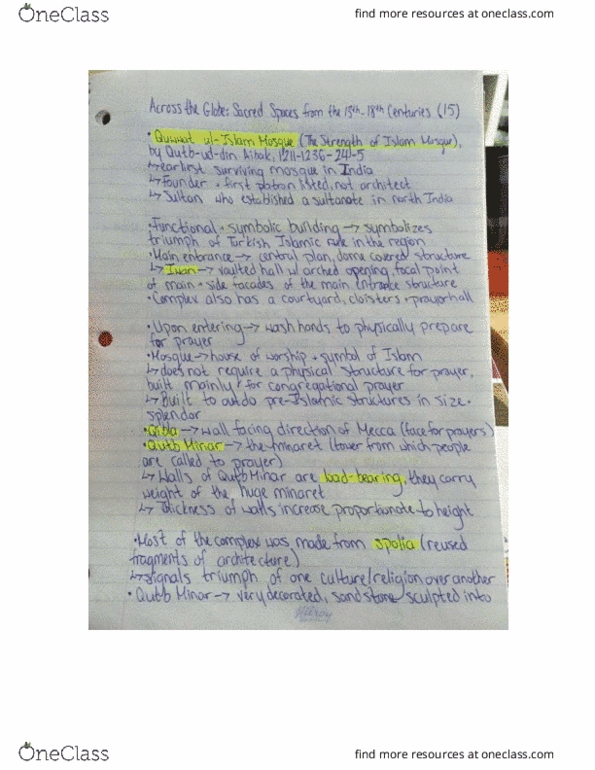 OneClass
find more resources at oneclass.com
Across the Globe: Sacred Spaces from the 15th-18th Centuries (15)
• Quwwat ul-Islam Mosque (The Strength of Islam Mosque),
by Qutb-ud-din Aibak, 1211-1236-241-5
↳ earliest surviving mosque in India
↳ Founder + first patron listed, not architect
↳ Sultan who established a sultanate in north India
• Functional + symbolic building → symbolizes
triumph of Turkish Islamic rule in the region
• Main entrance → central plan, dome covered structure
↳ Iwan → vaulted hall w arched opening, focal point
of main + side facades of the main entrance structure
• Complex also has a courtyard, cloisters + prayer hall
• Upon entering → wash hands to physically prepare
for prayer
• Mosque → house of worship + symbol of Islam
↳ does not require a physical structure for prayer,
built mainly for congregational prayer
↳ Built to outdo pre-Islamic structures in size +
splendor
• Qibla → wall facing direction of Mecca (face for prayers)
• Qutb Minar → the minaret (tower from which people
are called to prayer)
↳ Walls of Qutb Minar are load-bearing, they carry
weight of the huge minaret
↳ Thickness of walls increase proportionate to height
• Most of the complex was made from spolia (reused
fragments of architecture)
↳ signals triumph of one culture/religion over another
• Qutb Minar → very decorated, sandstone sculpted into
Hilroy
OneClass
find more resources at oneclass.com